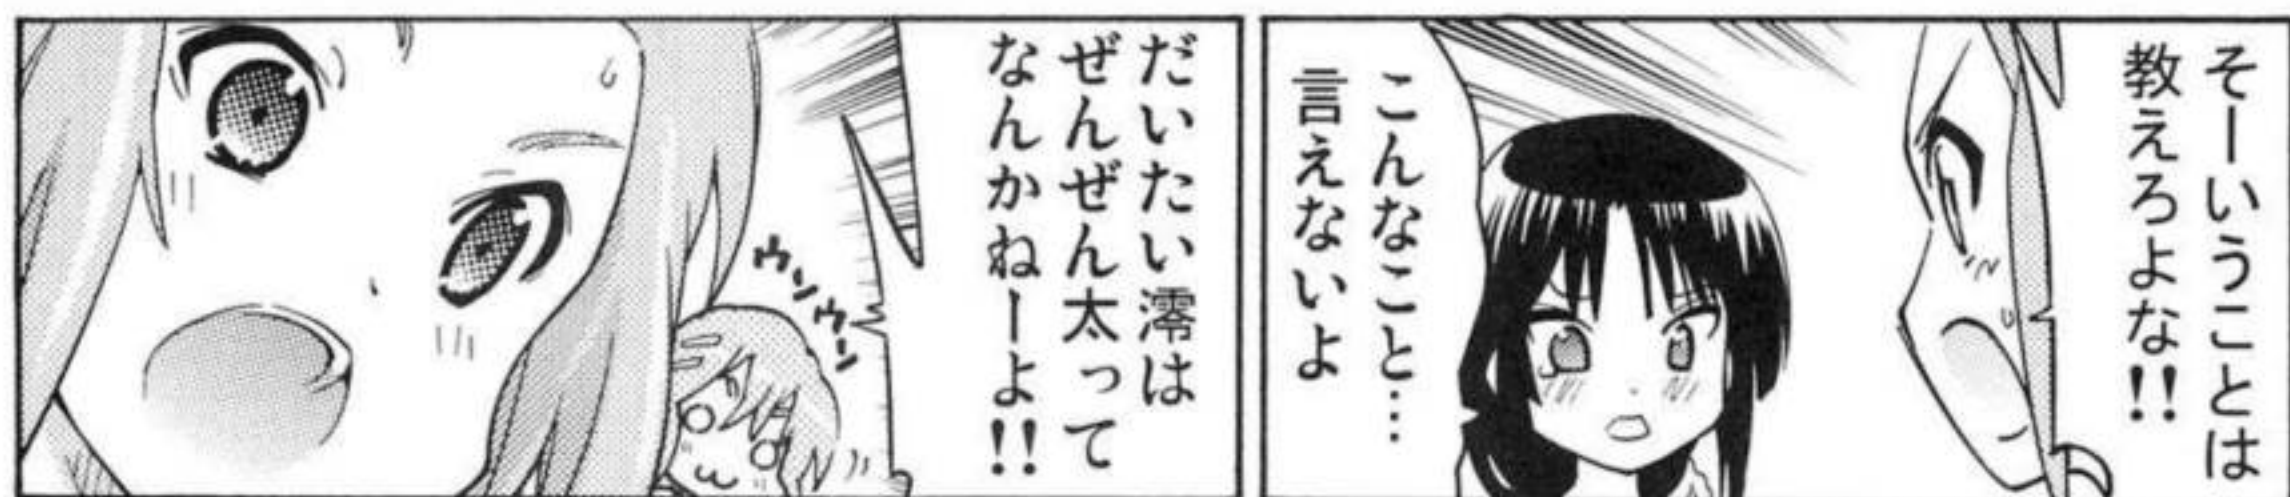 そーいうことは
教えろよな!!
こんなこと…
言えないよ
だいたい澪は
ぜんぜん太って
なんかねーよ!!
ウンウン